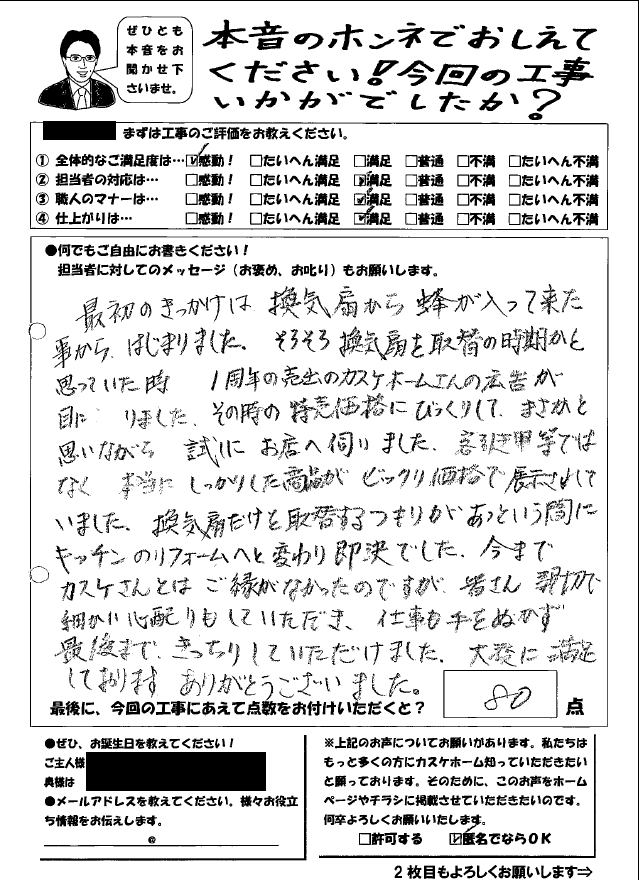 ぜひとも
本音をお
聞かせ下
さいませ。
本音のホンネでおしえて
ください!今回の工事
いかがでしたか?
まずは工事のご評価をお教えください。
① 全体的なご満足度は…☑感動! □たいへん満足 □満足 □普通 □不満 □たいへん不満
② 担当者の対応は… □感動! □たいへん満足 ☑満足 □普通 □不満 □たいへん不満
③ 職人のマナーは… □感動! □たいへん満足 ☑満足 □普通 □不満 □たいへん不満
④ 仕上がりは… □感動! □たいへん満足 ☑満足 □普通 □不満 □たいへん不満
●何でもご自由にお書きください!
担当者に対してのメッセージ(お褒め、お叱り)もお願いします。
最初のきっかけは 換気扇から 蜂が入って来た
事から はじまりました。 そろそろ 換気扇を取替の時期かと
思っていた時 1周年の売出のカスケホームさんの広告が
目に りました。その時の特売価格にびっくりして、まさかと
思いながら 試しに お店へ伺いました。客引き 等では
なく 本当に しっかりした商品が ビックリ価格で展示されて
いました。換気扇だけを取替するつもりがあっという間に
キッチンのリフォームへと変わり即決でした。今まで
カスケさんとは ご縁がなかったのですが 皆さん 親切で
細かい心配りもしていただき、仕事も手をぬかず
最後まで、きっちりしていただけました。大変に満足
しております ありがとうございました。
最後に、今回の工事にあえて点数をお付けいただくと? 80 点
●ぜひ、お誕生日を教えてください!
ご主人様
奥様は
●メールアドレスを教えてください。様々お役立
ち情報をお伝えします。
@
※上記のお声についてお願いがあります。私たちは
もっと多くの方にカスケホーム知っていただきたい
と願っております。そのために、このお声をホーム
ページやチラシに掲載させていただきたいのです。
何卒よろしくお願いいたします。
□許可する ☑匿名でならOK
2枚目もよろしくお願いします⇒